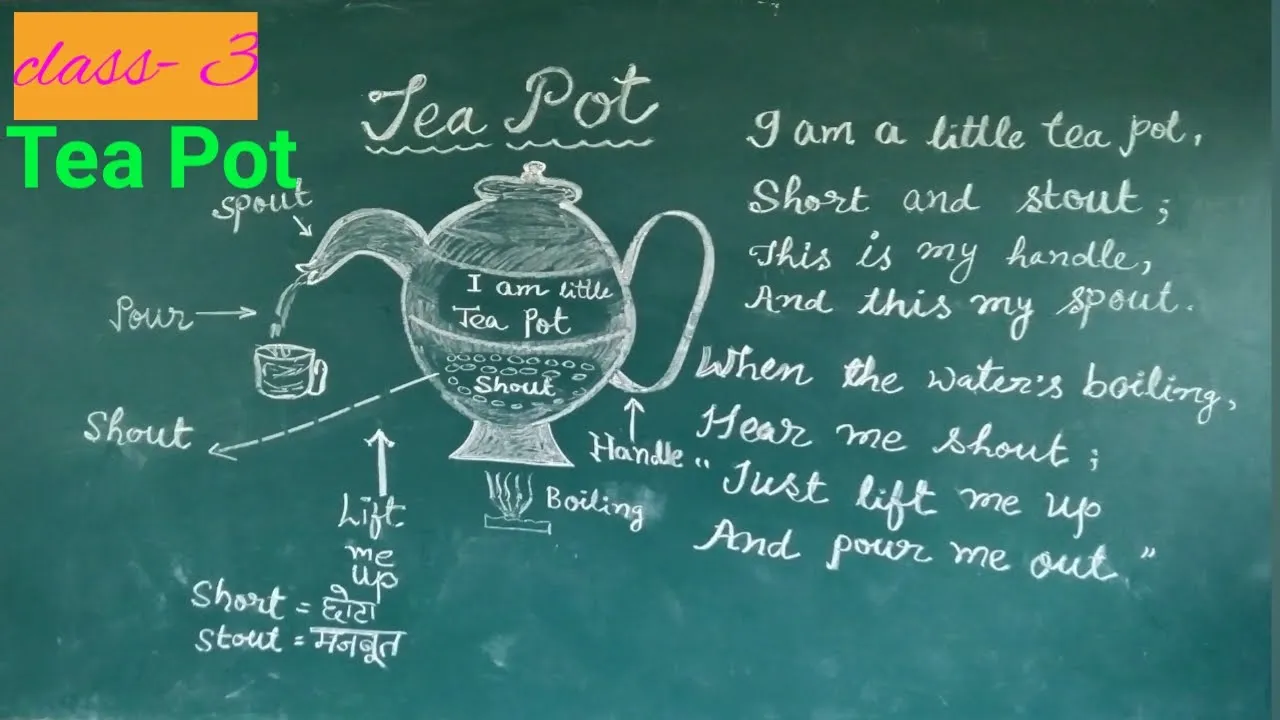 class- 3
Tea Pot
Tea Pot
Spout
Pour
Shout
Lift
me
up
Short = छोटा
Stout = मजबूत
I am little
Tea Pot
Shout
Handle
Boiling
I am a little tea pot,
Short and stout;
This is my handle,
And this my spout.
When the water's boiling,
Hear me shout;
"Just lift me up
And pour me out"